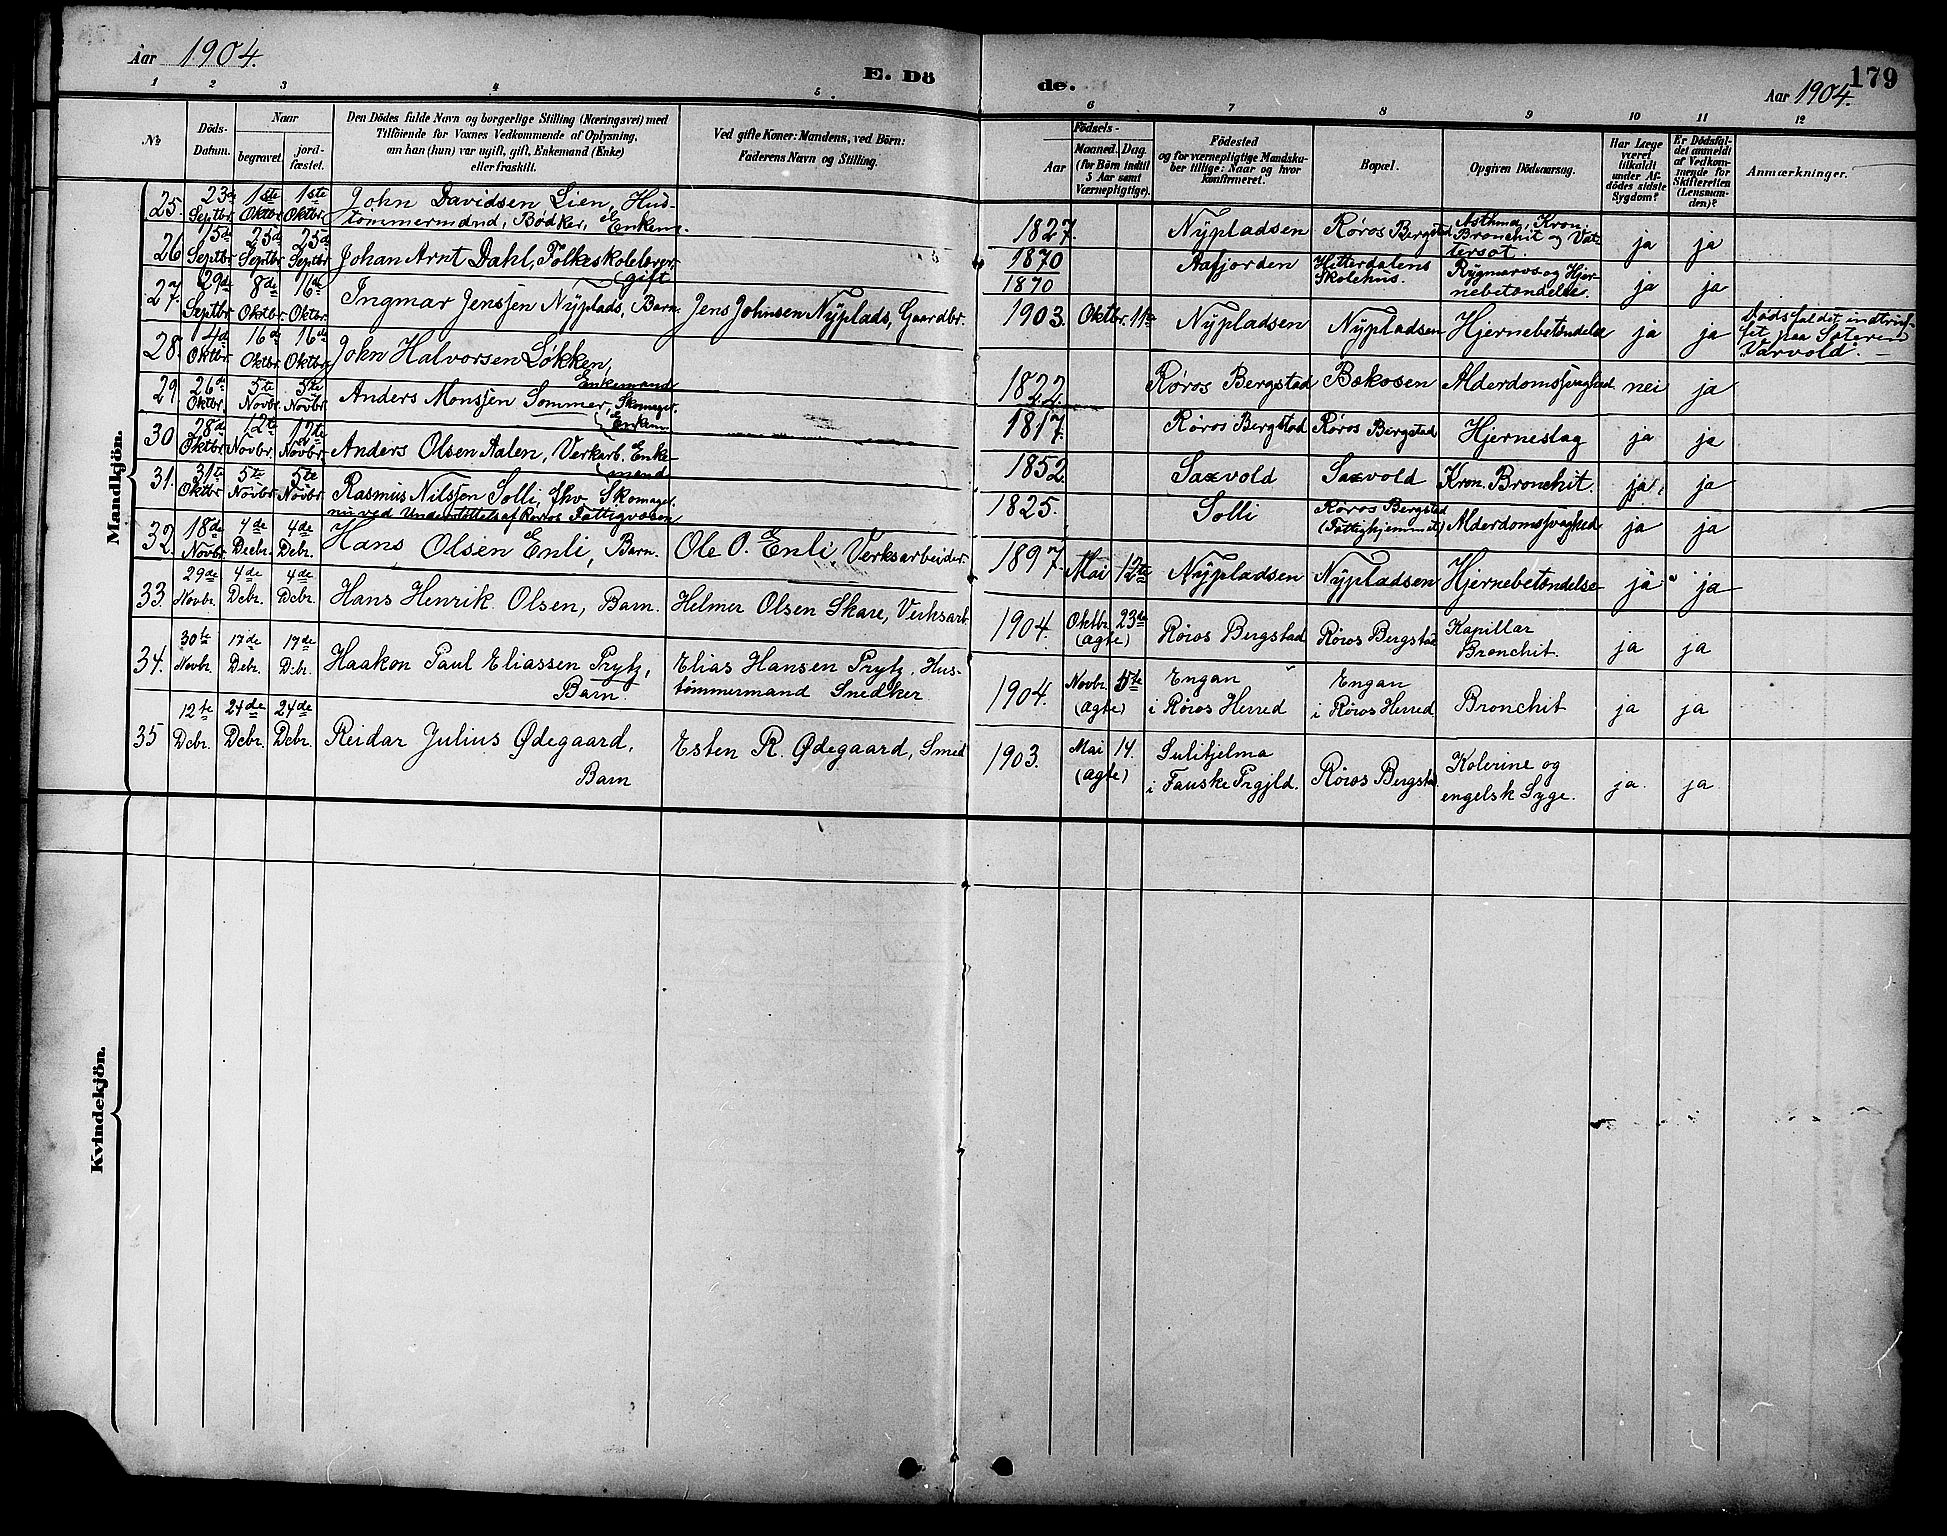 Aar 1904.
E. Dö
de.
179
Aar 1904.
1 2 3 4 5 6 7 8 9 10 11 12
No
Döds-Datum.
Naar
begravet.
jord-fæstet.
Den Dödes fulde Navn og borgerlige Stilling (Næringsvei) med
Tilföiende for Voxnes Vedkommende af Oplysning,
om han (hun) var ugift, gift, Enkemand (Enke)
eller fraskilt.
Ved gifte Koner: Mandens, ved Börn:
Faderens Navn og Stilling.
Födsels-
Aar
Maaned. Dag.
(for Börn indtil
5 Aar samt
Værnepligtige).
Födested
og for værnepligtige Mandska-
ber tillige: Naar og hvor
konfirmeret.
Bopæl.
Opgiven Dödsaarsag.
Har Læge
været
tilkaldt
under Af-
dödes sidste
Sygdom?
Er Dödsfal-
det anmeldt
af Vedkom-
mende for
Skifteretten
(Lensman-
den)?
Anmærkninger.
Mandkjön.
25. 23de Septbr. 1ste Oktbr. 1ste Oktbr. John Davidsen Lien, Hus-
tømmermand, Bødker, Enkem. 1827. Nypladsen Røros Bergstad Asthma, Kron.
Bronchit og Vat-
tersot. ja ja
26 15de Septbr. 25de Septbr. 25de Septbr. Johan Arnt Dahl, Folkeskolelærer
gift 1870 1870 Aafjorden Hitterdalens
Skolehus. Rygmarvs og Hjer-
nebetændelse. ja ja
27. 29de Septbr. 8de Oktbr. 16de Oktbr. Ingmar Jenssen Nyplads, Barn. Jens Johnsen Nyplads, Gaardbr. 1903. Oktbr. 11te Nypladsen Nypladsen Hjernebetændelse ja ja Dødsfaldet indtruf-
fet paa Sæteren
Varvold.
28. 14de Oktbr. 16de Oktbr. 16de Oktbr. John Halvorsen Løkken,
Enkemand 1822. Røros Bergstad Bakosen Alderdomssvaghed nei ja
29 26de Oktbr. 5te Novbr. 5te Novbr. Anders Monssen Sommer, Skomager.
Enkem 1817. Røros Bergstad Røros Bergstad Hjerneslag ja ja
30 28de Oktbr. 12te Novbr. 12te Novbr. Anders Olsen Aalen, Verkarb. Enke-
mand 1852. Saxvold Saxvold Kron. Bronchit. ja ja
31. 31te Oktbr. 5te Novbr. 5te Novbr. Rasmus Nilssen Solli, fhv. Skomager
nu ved Understöttet af Røros Fattigvæsen 1825. Solli Røros Bergstad
(Fattighjemmet) Alderdomssvaghed ja ja
32. 18de Novbr. 4de Decbr. 4de Debr. Hans Olsen Enli, Barn. Ole O. Enli Verksarbeider. 1897. Mai 12te Nypladsen Nypladsen Hjernebetændelse ja ja
33. 29de Novbr. 4de Debr. 4de Debr. Hans Henrik Olsen, Barn. Helmer Olsen Skare, Verksarb. 1904. Oktbr. 23de
(ægte) Røros Bergstad Røros Bergstad Kapillar
Bronchit. ja ja
34. 30te Novbr. 17de Debr. 17de Debr. Haakon Paul Eliassen Prytz,
Barn. Elias Hansen Prytz, Hus-
tømmermand Snedker 1904. Novbr. 5te
(ægte) Engan
i Røros Herred Engan
i Røros Herred Bronchit ja ja
35 12te Debr. 24de Debr. 24de Debr. Reidar Julius Ødegaard,
Barn Esten R. Ødegaard, Smed 1903. Mai 14.
(ægte) Sulitjelma
i Fauske Prgjld. Røros Bergstad Kolerine og
engelsk Syge. ja. ja
Kvindekjön.